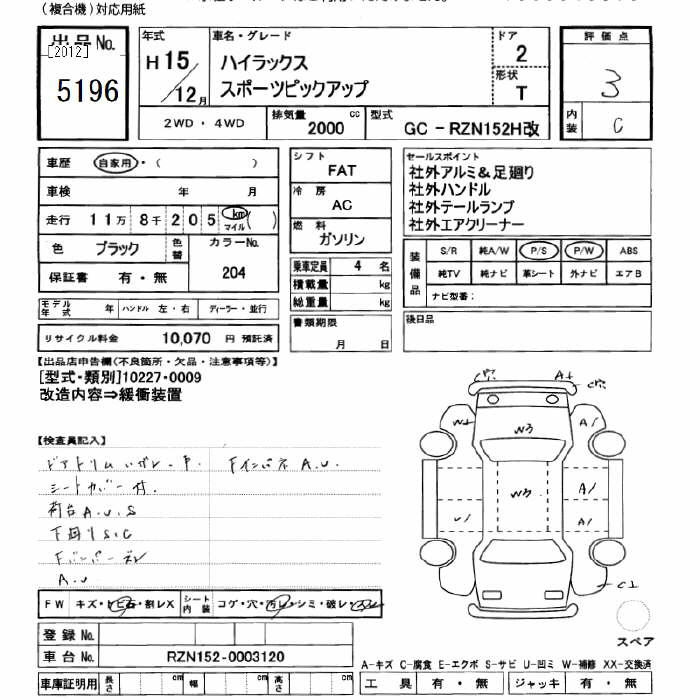 (複合機)対応用紙
出品No.
[2012]
5196
年式
H15/12月
車名・グレード
ハイラックス
スポーツピックアップ
ドア
2
形状
T
評価点
3
内装
C
2WD・4WD
排気量
2000 cc
型式
GC－RZN152H改
車歴 自家用・( )
車検 年 月
走行 11万8千205 km マイル ( )
色 ブラック 色替 カラーNo.
204
保証書 有・無
モデル年式 年 ハンドル 左・右 ディーラー・並行
リサイクル料金 10,070 円 預託済
シフト
FAT
冷房
AC
燃料
ガソリン
乗車定員 4 名
積載量 kg
総重量 kg
書類期限
月 日
セールスポイント
社外アルミ&足廻り
社外ハンドル
社外テールランプ
社外エアクリーナー
装備品
S/R 純A/W P/S P/W ABS
純TV 純ナビ 革シート 外ナビ エアB
ナビ型番：
後日品
【出品店申告欄(不良箇所・欠品・注意事項等)】
[型式・類別]10227-0009
改造内容⇒緩衝装置
【検査員記入】
ドアトリム ハガレ・P. Fインパネ A.U.
シートカバー付.
荷台 A.U.S
下廻り S.C
A.U
A+
W3
A/
W3
A/
A/
U/
FW キズ・トビ石・割レX シート内装 コゲ・穴・汚レ・シミ・破レ・スレ
登録No.
車台No. RZN152-0003120
車庫証明用 長さ cm 幅 cm 高さ cm
スペア
A-キズ C-腐食 E-エクボ S-サビ U-凹ミ W-補修 XX-交換済
工具 有・無 ジャッキ 有・無